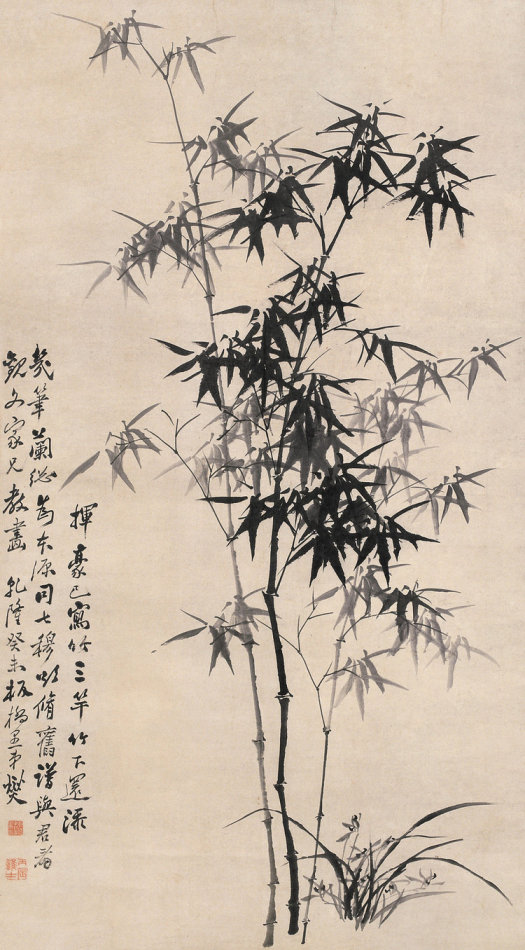 揮豪已寫竹三竿竹下還添
幾筆蘭總為本源同七穆欲脩舊譜與君看
觀文家兄教畫 乾隆癸未板橋愚弟燮
丙辰進士